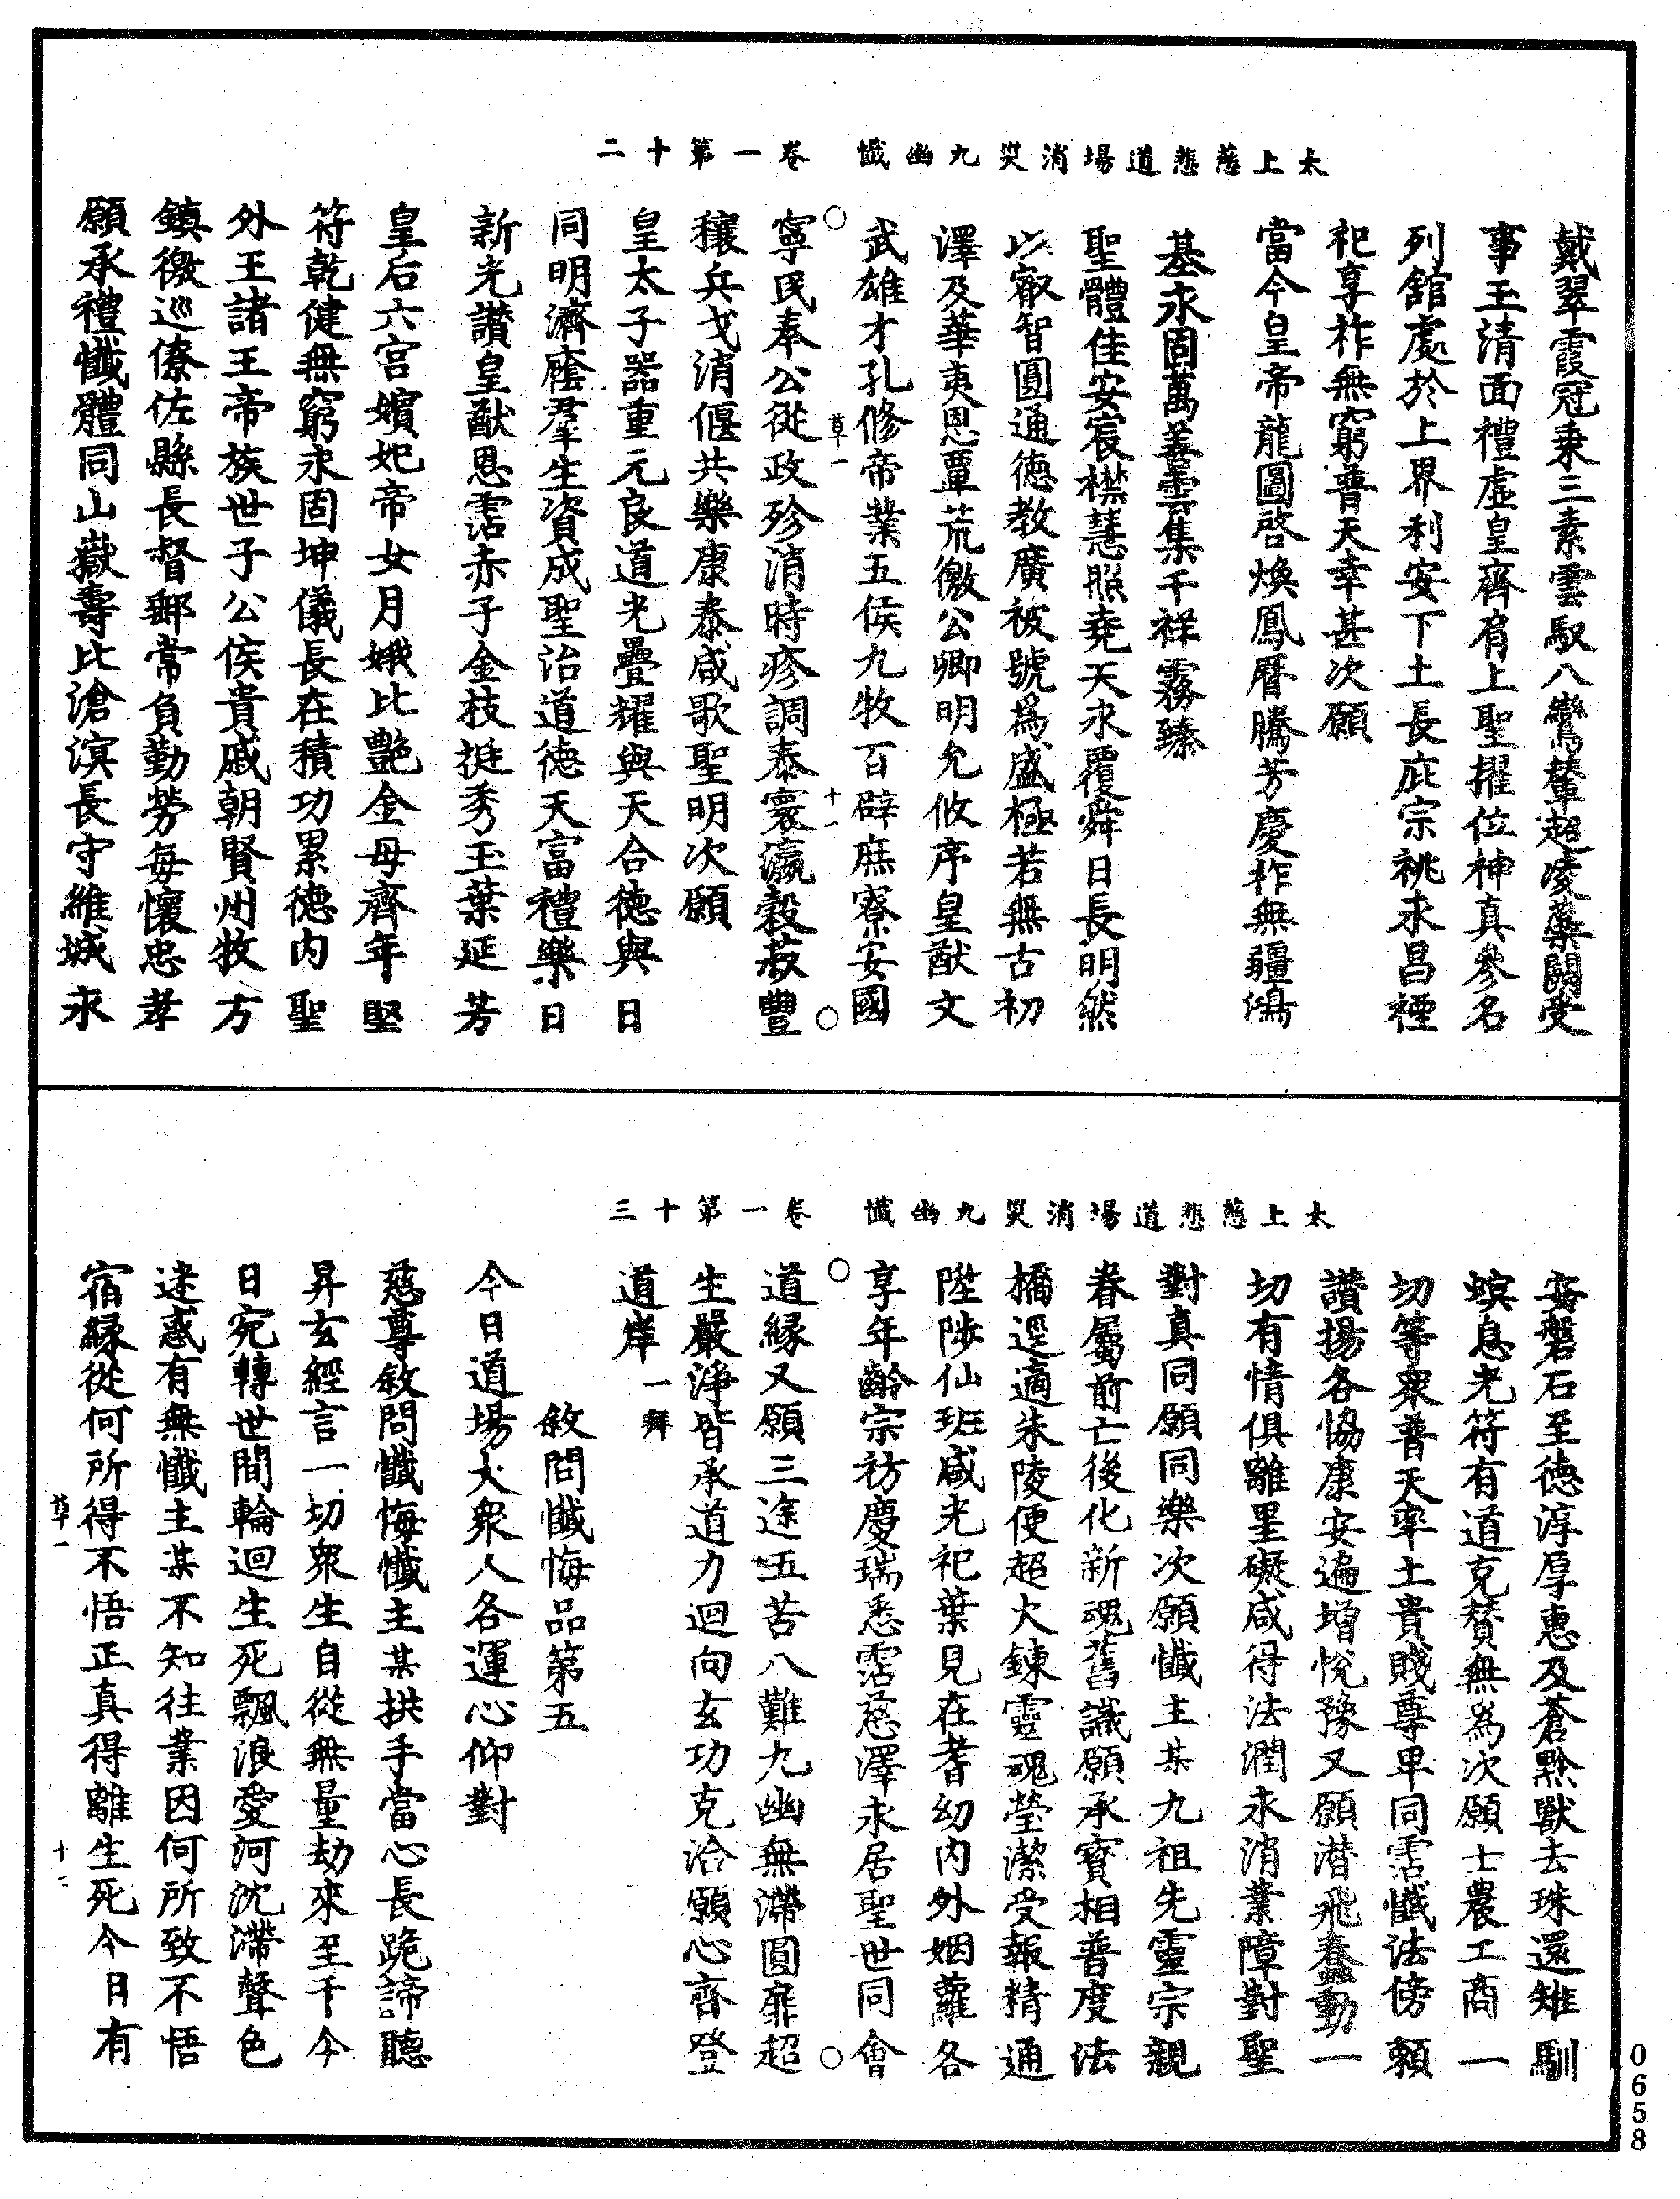 太上慈悲道場消災九幽懴　卷一第十二
戴翠霞冠乗三素雲馭八鸞輦超凌藥闕受
事玉清面禮虛皇齊肩上聖擢位神真參名
列舘處於上界利安下土長庇宗祧永昌禋
祀享祚無窮普天幸甚次願
當今皇帝龍圖啓煥鳳曆騰芳慶祚無疆鴻
基永固萬善雲集千祥霧臻
聖體佳安宸襟慧照堯天永覆舜日長明然
以叡智圓通德教廣被號爲盛極若無古初
澤及華夷恩覃荒徼公卿明允攸序皇猷文
武雄才孔修帝業五侯九牧百辟庶寮安國
寧民奉公從政殄消時疹調泰寰瀛穀菽豐
穰兵戈消偃共樂康泰咸歌聖明次願
皇太子器重元良道光疊耀與天合德與日
同明濟廕羣生資成聖治道德天富禮樂日
新光讃皇猷恩霑赤子金枝挺秀玉葉延芳
皇后六宫嬪妃帝女月娥比艷金母齊年堅
符乾健無窮永固坤儀長在積功累德内聖
外王諸王帝族世子公侯貴戚朝賢州牧方
鎮徼巡僚佐縣長督郵常負勤勞每懷忠孝
願承禮懴體同山嶽壽比滄溟長守維城永
草一
十一
太上慈悲道場消災九幽懴　卷一第十三
安磐石至德淳厚惠及蒼黔獸去珠還雉馴
螟息光符有道克賛無爲次願士農工商一
切等衆普天率土貴賤尊卑同霑懴法傍頼
讃揚各協康安遍增悅豫又願潜飛蠢動一
切有情俱離罣礙咸得法潤永消業障對聖
對真同願同樂次願懴主某九祖先靈宗親
眷屬前亡後化新魂舊識願承寳相普度法
橋逕適朱陵便超火鍊靈魂瑩潔受報精通
陞陟仙班咸光祀葉見在耆幼内外姻蘿各
享年齡宗祊慶瑞悉霑慈澤永居聖世同會
道緣又願三途五苦八難九幽無滯圓扉超
生嚴淨皆承道力迴向玄功克洽願心齊登
道岸一拜
敘問懴悔品第五
今日道場大衆人各運心仰對
慈尊敘問懴悔懴主某拱手當心長跪諦聽
昇玄經言一切衆生自從無量劫來至于今
日宛轉世間輪迴生死飄浪愛河沈滯聲色
迷惑有無懴主某不知往業因何所致不悟
宿緣從何所得不悟正真得離生死今日有
草一
十二
0658